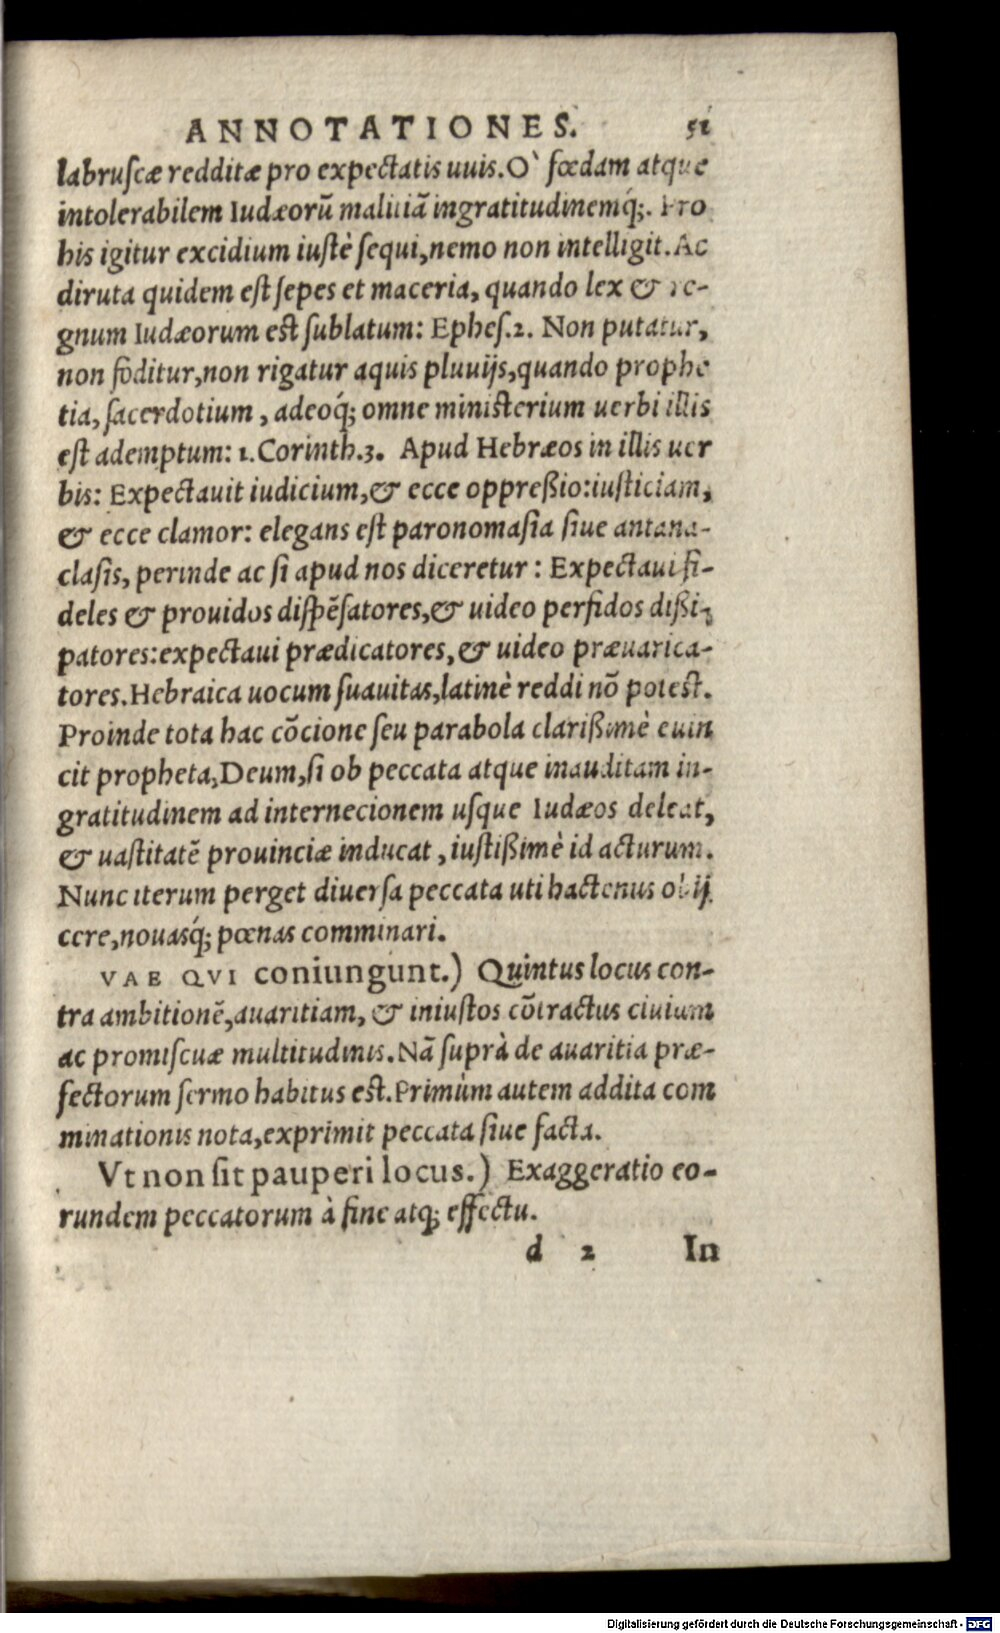 ANNOTATIONES. 51
labruſcæ redditæ pro expectatis uuis. O` fœdam atque
intolerabilem Iudæorũ malitiã ingratitudinemq́;. Pro
his igitur excidium iuſtè ſequi, nemo non intelligit. Ac
diruta quidem eſt ſepes et maceria, quando lex & re-
gnum Iudæorum eſt ſublatum: Epheſ.2. Non putatur,
non foditur, non rigatur aquis pluuijs, quando prophe
tia, ſacerdotium, adeoq́; omne miniſterium uerbi illis
eſt ademptum: 1. Corinth.3. Apud Hebræos in illis uer
bis: Expectauit iudicium, & ecce oppreßio: iuſticiam,
& ecce clamor: elegans eſt paronomaſia ſiue antana-
claſis, perinde ac ſi apud nos diceretur: Expectaui fi-
deles & prouidos diſpẽſatores, & uideo perfidos dißi-
patores: expectaui prædicatores, & uideo præuarica-
tores. Hebraica uocum ſuauitas, latinè reddi nõ poteſt.
Proinde tota hac cõcione ſeu parabola clarißimè euin
cit propheta, Deum, ſi ob peccata atque inauditam in-
gratitudinem ad internecionem uſque Iudæos deleat,
& uaſtitatẽ prouinciæ inducat, iuſtißimè id acturum.
Nunc iterum perget diuerſa peccata uti hactenus obij
cere, nouasq́; pœnas comminari.
VAE QVI coniungunt.) Quintus locus con-
tra ambitionẽ, auaritiam, & iniuſtos cõtractus ciuium
ac promiſcuæ multitudinis. Nã ſuprà de auaritia præ-
fectorum ſermo habitus eſt. Primùm autem addita com
minationis nota, exprimit peccata ſiue facta.
Vt non ſit pauperi locus.) Exaggeratio eo-
rundem peccatorum à fine atq; effectu.
d 2 In
Digitalisierung gefördert durch die Deutsche Forschungsgemeinschaft - DFG